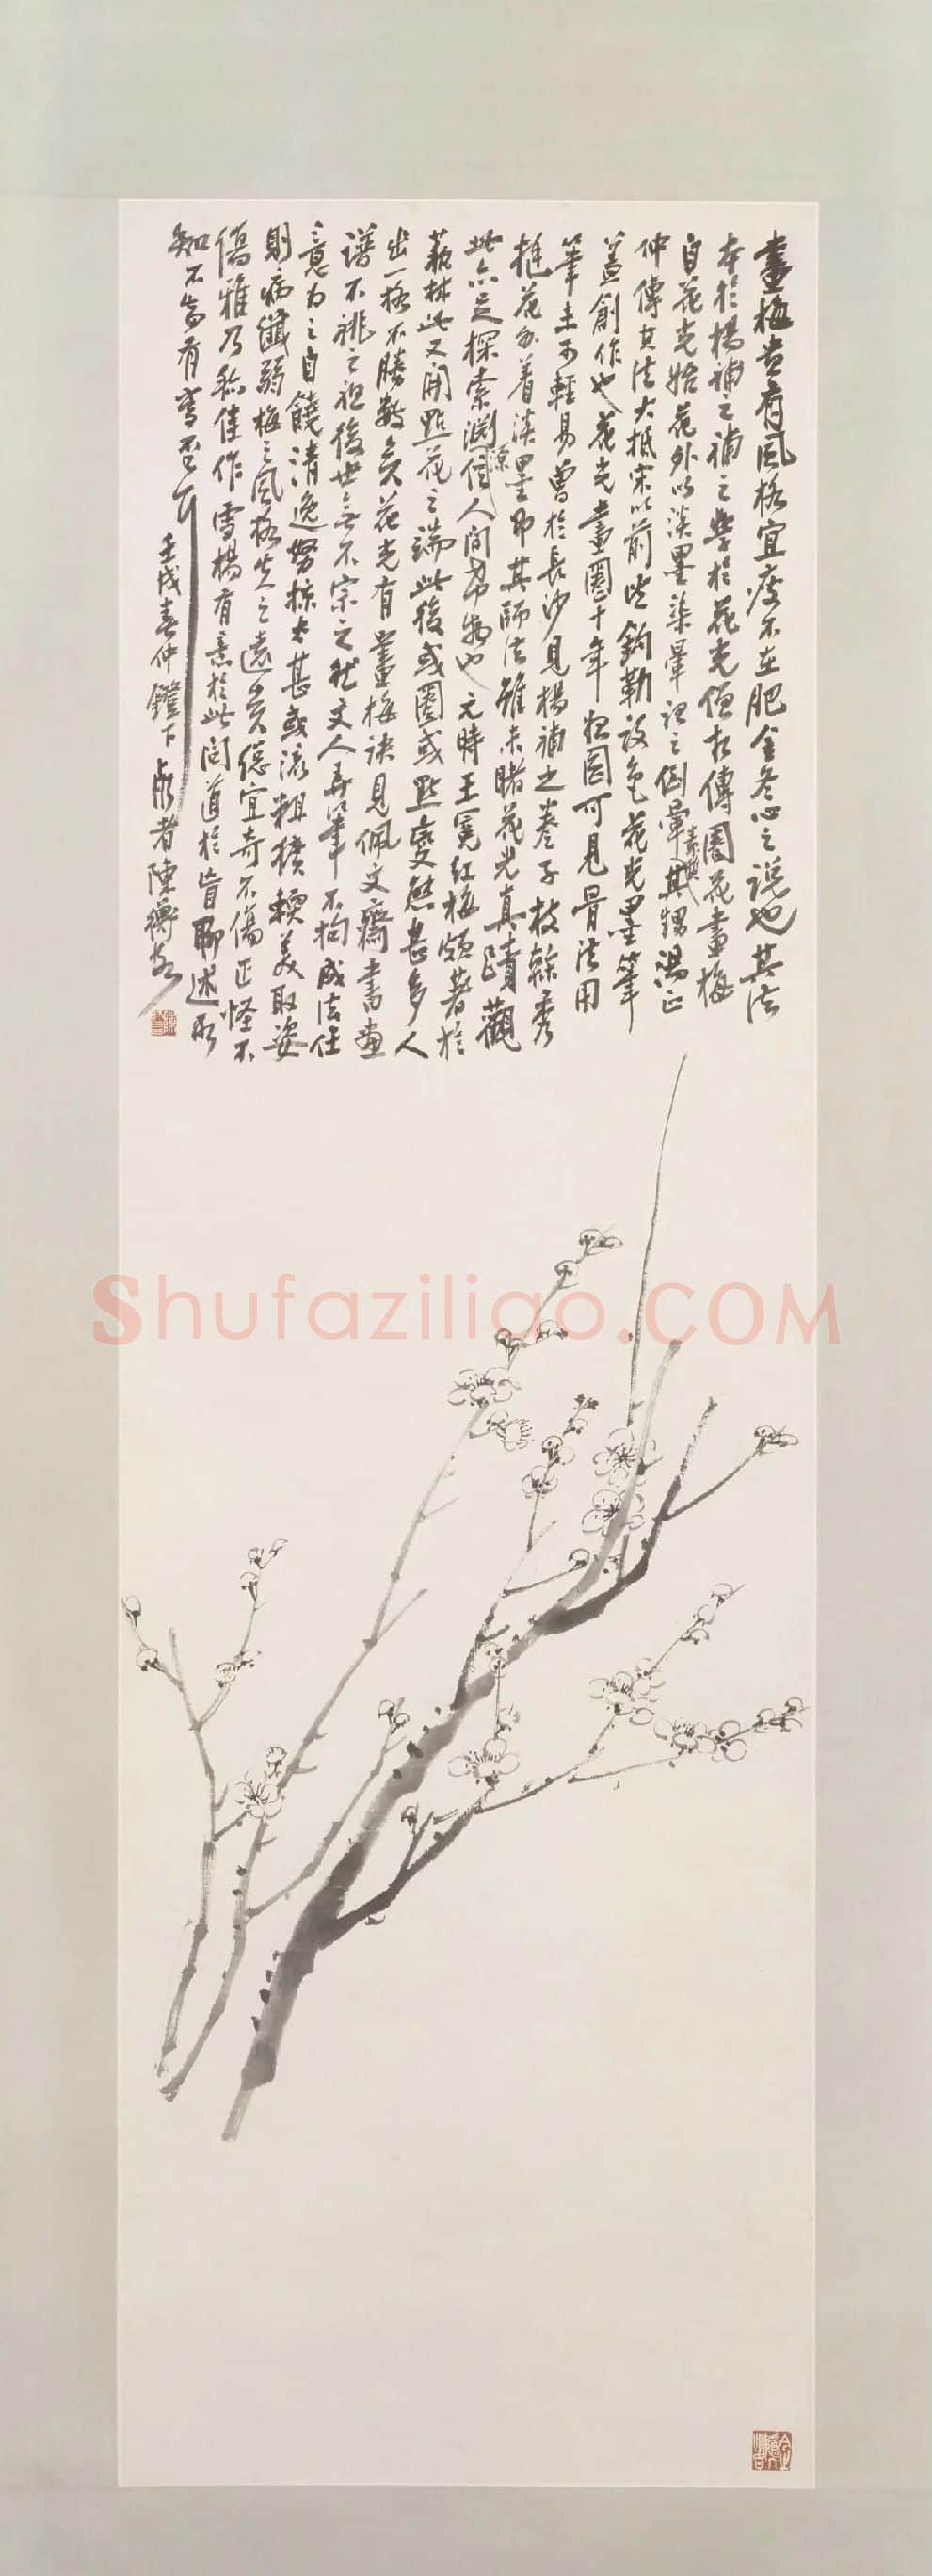 畫梅貴有風格宜瘦不在肥金冬心之說也其法
本於楊補之補之學於花光僧相傳圈花畫梅
自花光始花外以淡墨染暈謂之倒暈其甥湯正
仲傳其法大抵宋以前皆鉤勒設色花光墨筆
蓋創作也花光畫圈十年 圖可見骨法用
筆未可輕易曾於長沙見楊補之卷子枝榦秀
挺花外着淡墨即其師法雖未睹花光真蹟觀
此亦足探索淵源 人間希物也元時王冕紅梅頗著於
藝林此又開點花之端此後或圈或點變態甚多人
出一格不勝數矣花光有畫梅訣見佩文齋書畫
譜不祧之祖後世無不宗之然文人弄筆不拘成法任
意為之自饒清逸努掠太甚或流粗獷輭美取姿
則病纖弱梅之風格失之遠矣總宜奇不傷正怪不
傷雅乃稱佳作雪楊有意於此問道於盲聊述所
知不知有當否耳
壬戌春仲鐙下 者陳衡恪
Shufaziliao.COM